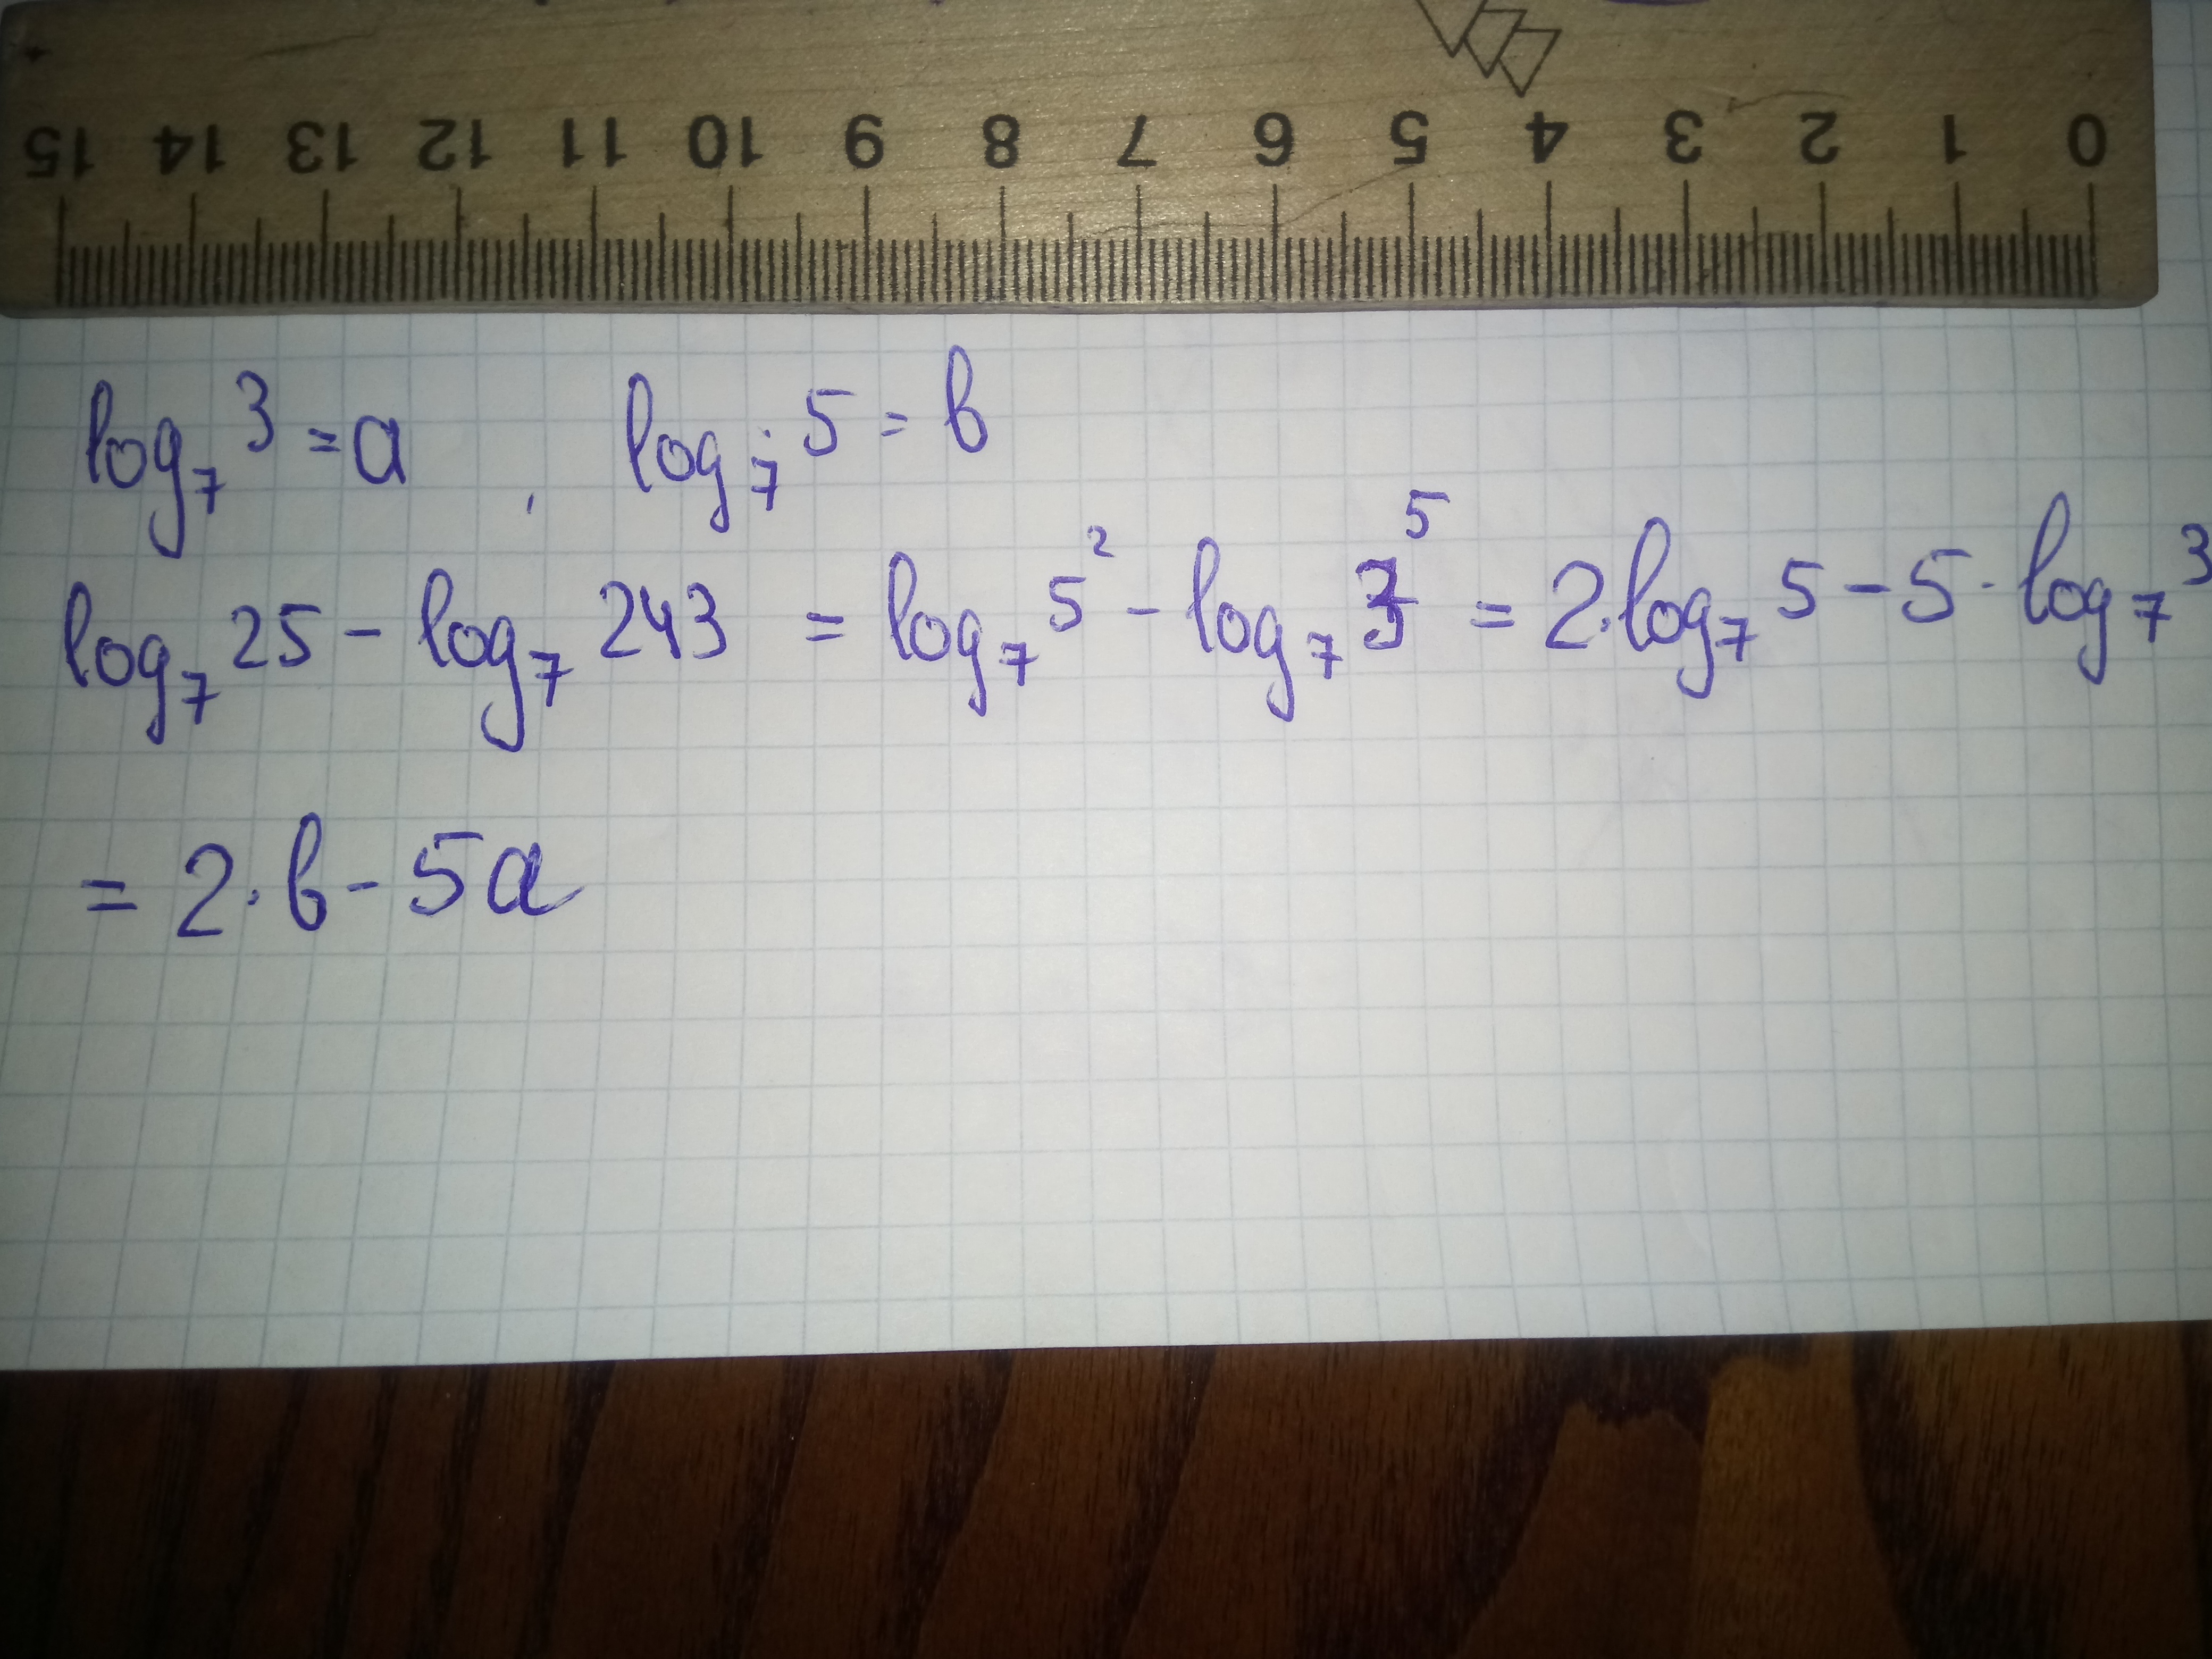 15 14 13 12 11 10 9 8 7 6 5 4 3 2 1 0
log₇3 = a , log₇5 = b
log₇25 - log₇243 = log₇5² - log₇3⁵ = 2·log₇5 - 5·log₇3
= 2·b - 5a